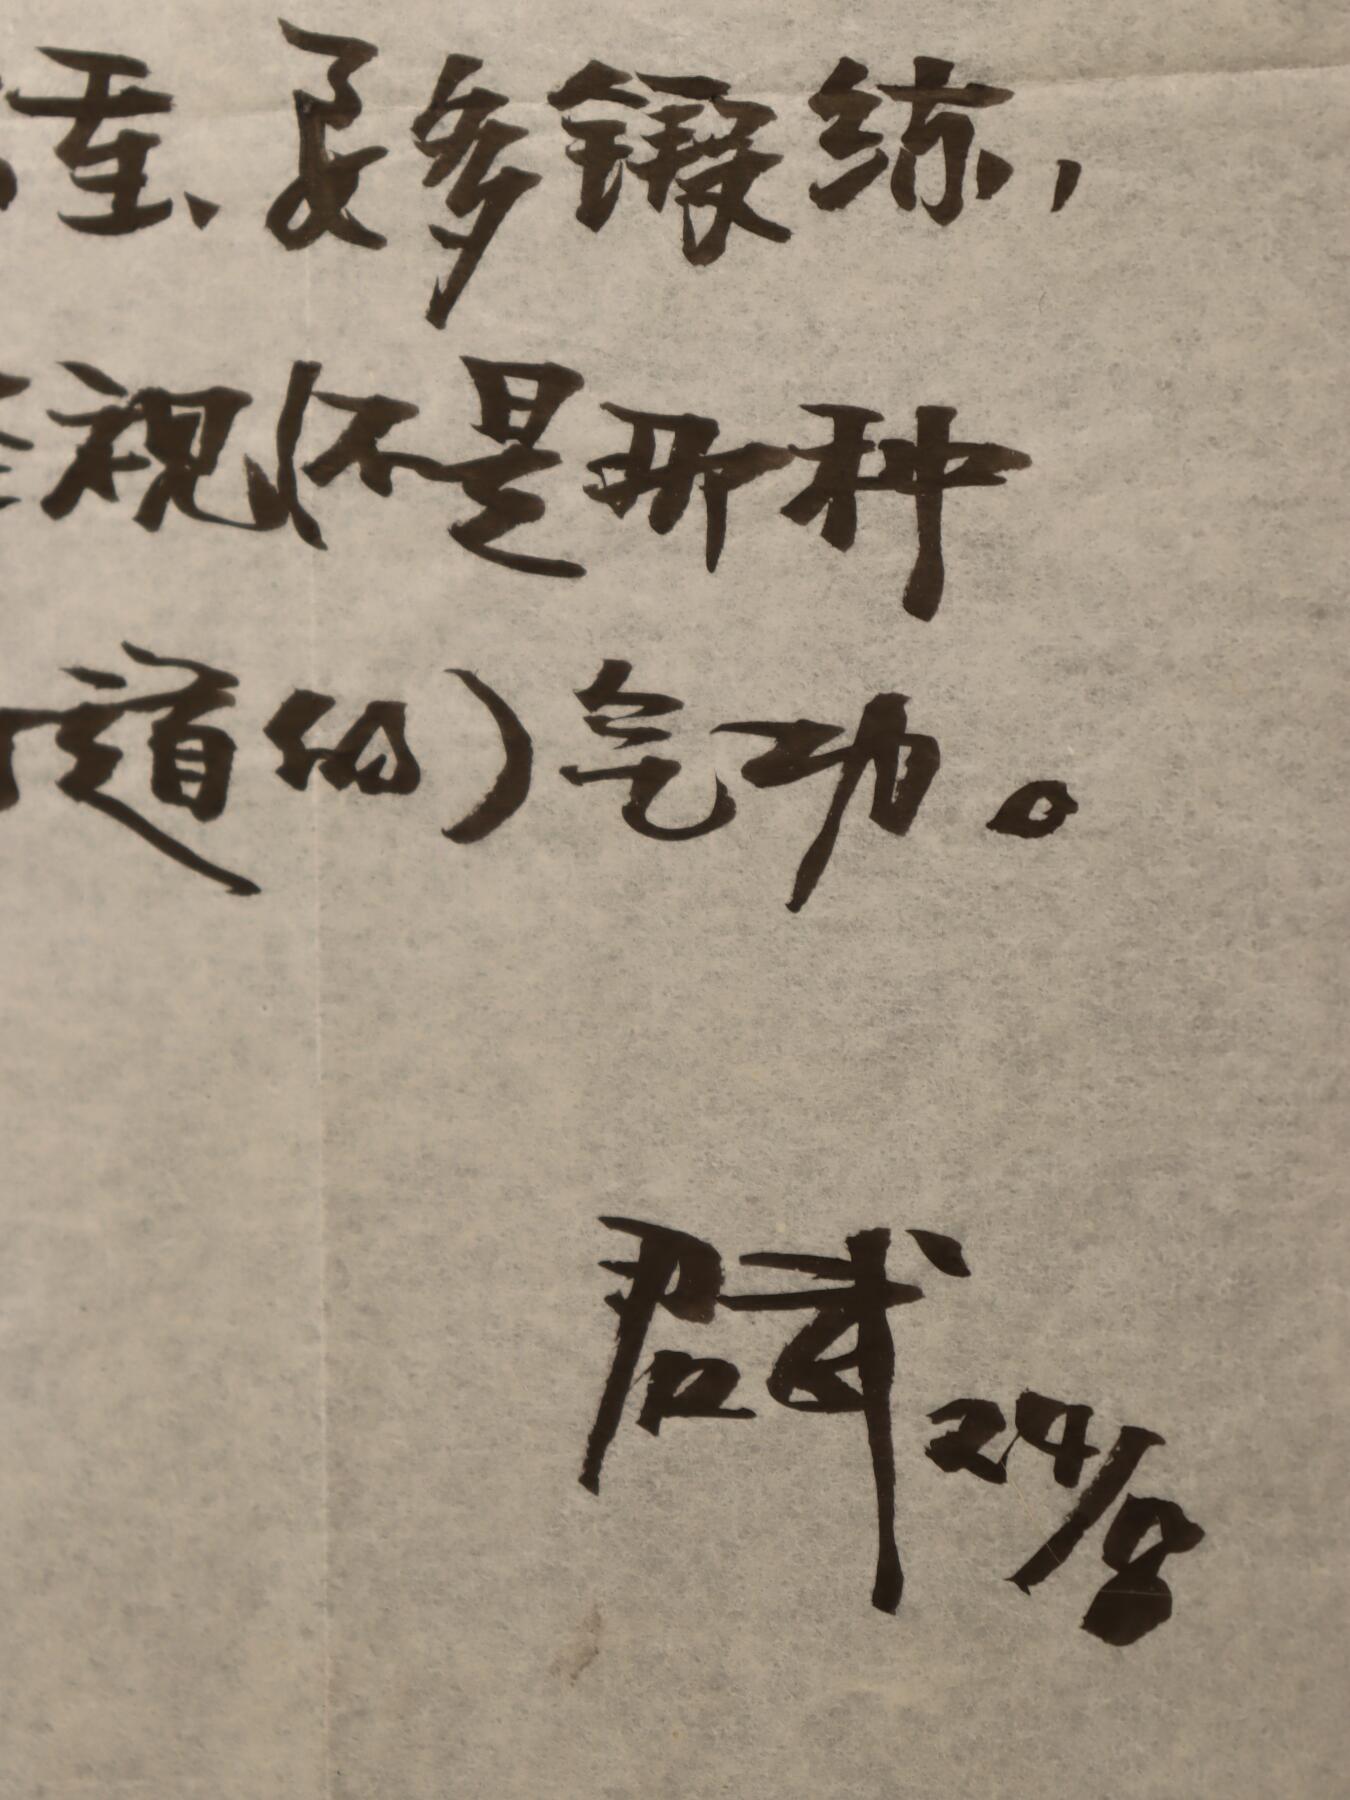 重、要多锻练,
视还是那种
道的)气功。
君武 24/8